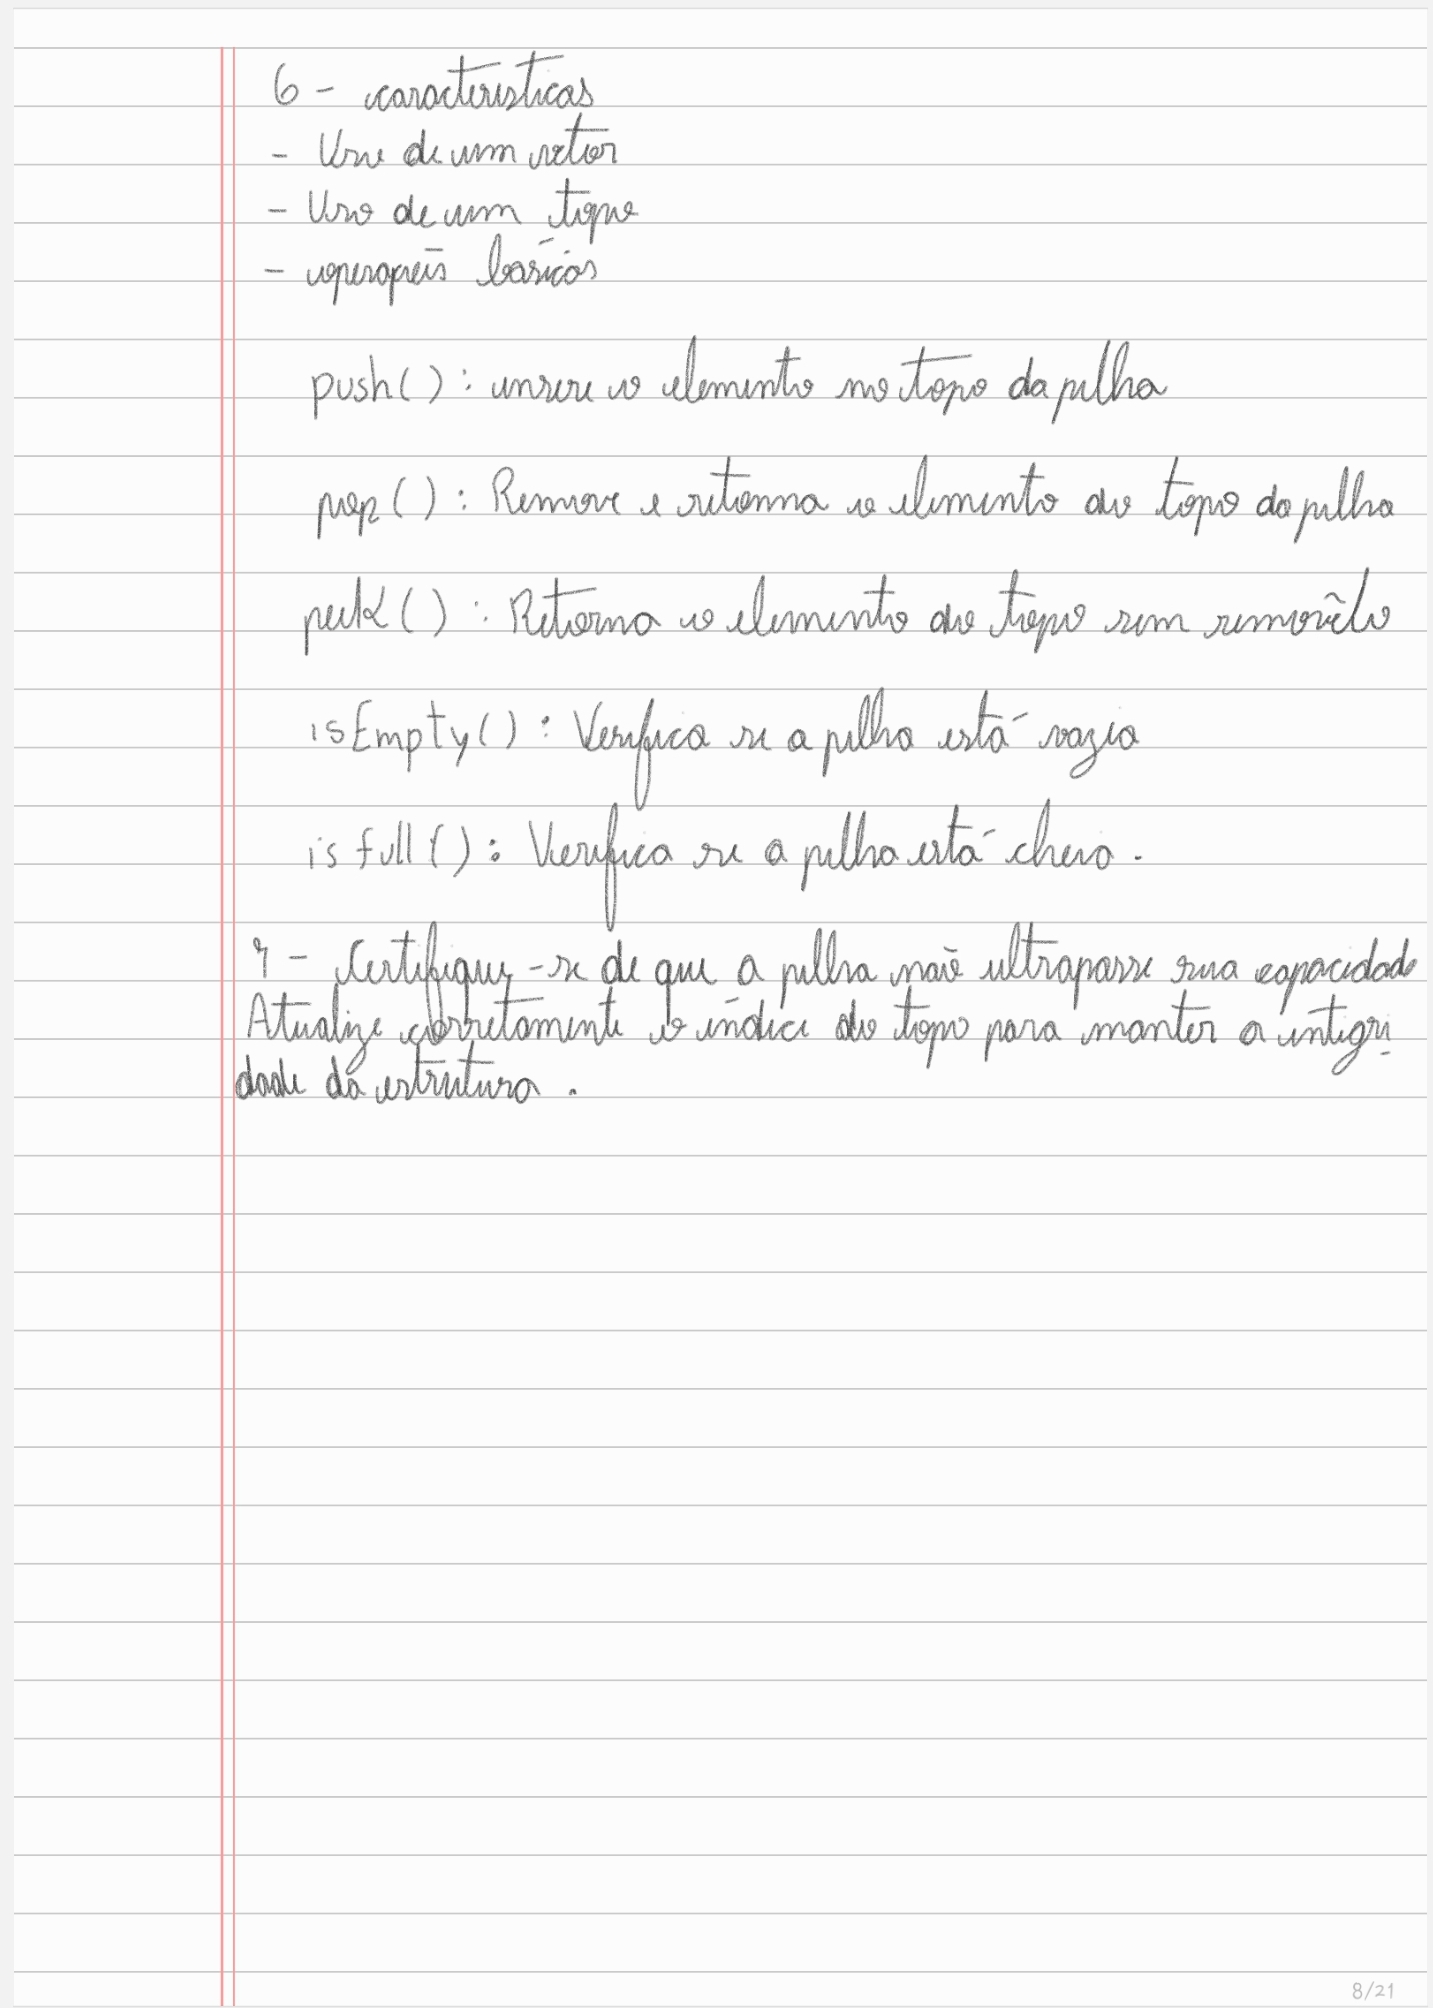 6 - caracteristicas
- Uso de um vetor
- Uso de um topo
- operações básicas
push() : insere o elemento no topo da pilha
pop() : Remove e retorna o elemento do topo da pilha
peek() : Retorna o elemento do topo sem removêlo
isEmpty() : Verifica se a pilha está vazia
isfull() : Verifica se a pilha está cheia.
7 - Certifique-se de que a pilha não ultrapasse sua capacidade
Atualize corretamente o índice do topo para manter a integri
dade da estrutura.
8/21